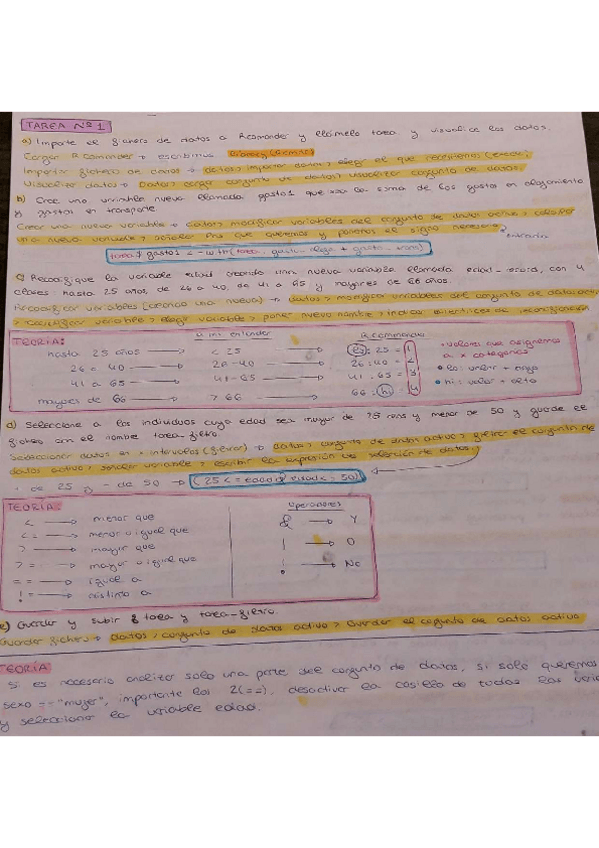 TAREA Nº 1
a) Importe el fichero de datos a Rcmander y llámelo tarea y visualice los datos.
Cargar R Commander → escribimos library(Rcmdr)
Importar fichero de datos → datos > importar datos > elegir el que necesitemos (excel)
Visualizar datos → Datos > cargar conjunto de datos > visualizar conjunto de datos.
b) Cree una variable nueva llamada gasto1 que sea la suma de los gastos en alojamiento
y gastos en transporte
Crear una nueva variable → datos > modificar variables del conjunto de datos activo > calcular
una nueva variable > señalar las que queremos y ponemos el signo necesario
tarea$gasto1 = with(tarea, gasto_aloja + gasto_trans)
c) Recodifique la variable edad creando una nueva variable llamada edad_recod, con 4
clases: hasta 25 años, de 26 a 40, de 41 a 65 y mayores de 66 años.
Recodificar variables (creando una nueva) → datos > modificar variables del conjunto de datos activo
> recodificar variable > elegir variable > poner nuevo nombre > indicar directrices de recodificación
TEORÍA: a mi entender R commander
hasta 25 años → < 25 → lo: 25 = 1
26 a 40 → 26-40 → 26:40 = 2
41 a 65 → 41-65 → 41:65 = 3
mayores de 66 → > 66 → 66:hi = 4
• valores que asignamos
a x categorías
• lo: valor + bajo
• hi: valor + alto
d) Seleccione a los individuos cuya edad sea mayor de 25 años y menor de 50 y guarde el
fichero con el nombre tarea-filtro.
Seleccionar datos en > intervalos (filtrar) → datos > conjunto de datos activo > filtrar el conjunto de
datos activo > señalar variable > escribir la expresión de selección de datos.
+ de 25 y - de 50 → (25 <= edad & edad <= 50)
TEORIA:
< → menor que
<= → menor o igual que
> → mayor que
>= → mayor o igual que
== → igual a
!= → distinto a
Operadores
& → Y
| → O
! → No
e) Guardar y subir tarea y tarea-filtro.
Guardar fichero → datos > conjunto de datos activo > Guardar el conjunto de datos activo
TEORÍA:
Si es necesario analizar solo una parte del conjunto de datos, si solo queremos
sexo == "mujer", importante los 2(==), desactivar la casilla de todas las
y seleccionar la variable edad.